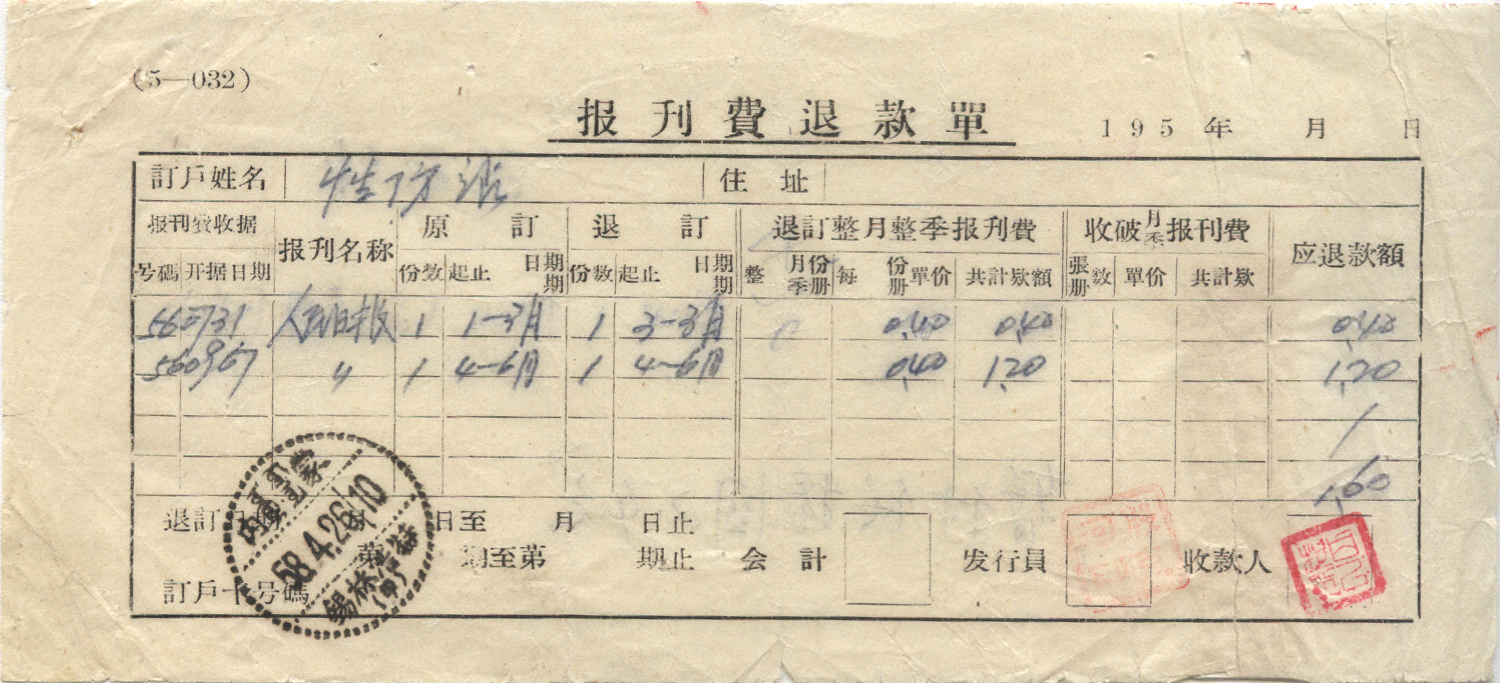 (5—032)
报刊費退款單
195 年 月 日
訂戶姓名 性防站 住址
报刊費收据 报刊名称 原訂 退訂 退訂整月整季报刊費 收破月季报刊費 应退款額
号碼 开据日期 份数 起止日期期 份数 起止日期期 整月季份册 每份册單价 共計款額 張册数 單价 共計款
人民日报 1 1-3月 1 3-3月 0.40 0.40 0.40
〃 1 4-6月 1 4-6月 0.40 1.20 1.20
1.60
退訂日期 月 日至 月 日止
第 期至第 期止 会計 发行員 收款人
訂戶卡号碼
内蒙
58.4.26.10
錫林